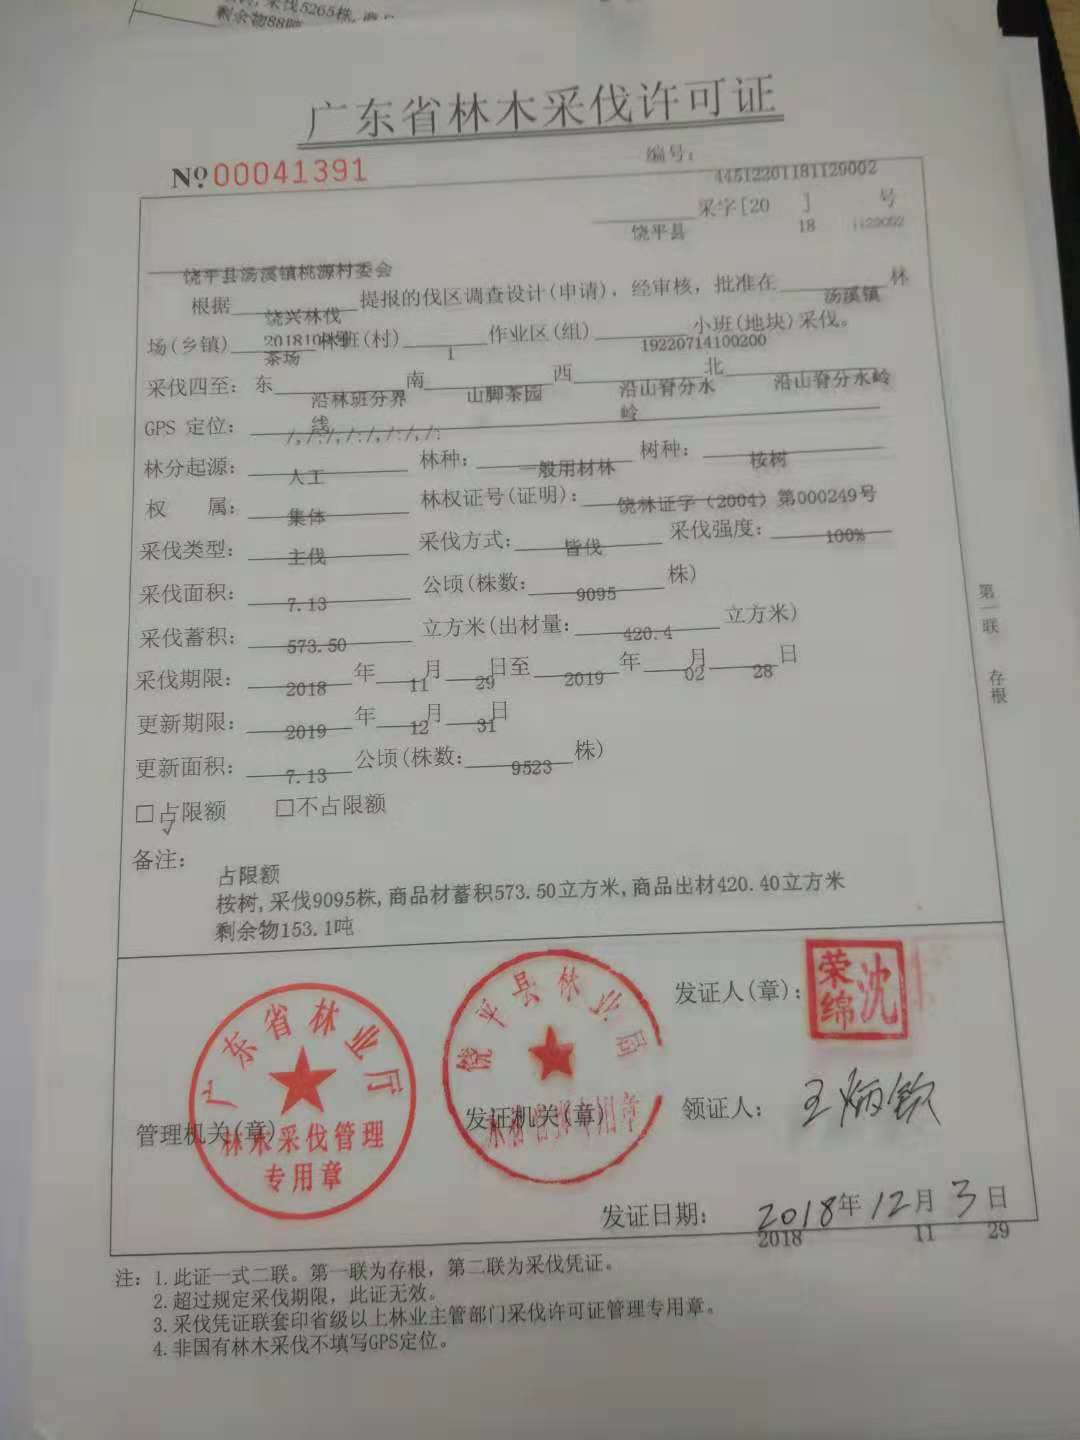 采伐5265株,
剩余物88吨
广东省林木采伐许可证
№ 00041391
编号:
44512201181129002
采字[20 ] 号
饶平县 18 1129002
饶平县汤溪镇桃源村委会
根据 提报的伐区调查设计(申请), 经审核, 批准在 林
饶兴林伐 汤溪镇
场(乡镇) 林班(村) 作业区(组) 小班(地块)采伐。
茶场 1 19220714100200
采伐四至: 东 南 西 北
沿林班分界 山脚茶园 沿山脊分水 沿山脊分水岭
线 岭
GPS 定位:
/,/:/,/:/,/:/,/:
林分起源: 林种: 树种:
人工 一般用材林 桉树
权 属: 林权证号(证明):
集体 饶林证字(2004)第000249号
采伐类型: 采伐方式: 采伐强度:
主伐 皆伐 100%
采伐面积: 公顷(株数: 株)
7.13 9095
采伐蓄积: 立方米(出材量: 立方米)
573.50 420.4
采伐期限: 年 月 日至 年 月 日
2018 11 29 2019 02 28
更新期限: 年 月 日
2019 12 31
更新面积: 公顷(株数: 株)
7.13 9523
□占限额 □不占限额
√
备注:
占限额
桉树,采伐9095株,商品材蓄积573.50立方米,商品出材420.40立方米
剩余物153.1吨
第一联 存根
广东省林业厅
林木采伐管理
专用章
管理机关(章)
饶平县林业局
发证机关(章)
发证人(章):
沈荣绵
领证人: 王炳钦
发证日期: 2018年12月3日
2018 11 29
注: 1.此证一式二联。第一联为存根, 第二联为采伐凭证。
2.超过规定采伐期限, 此证无效。
3.采伐凭证联套印省级以上林业主管部门采伐许可证管理专用章。
4.非国有林木采伐不填写GPS定位。